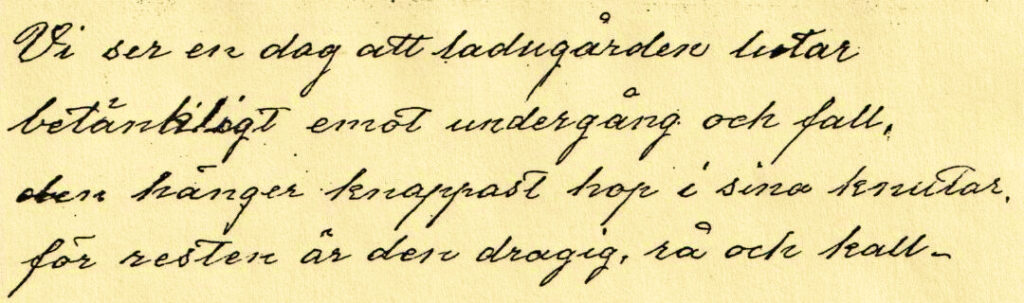 Vi ser en dag att ladugården lutar
betänkligt emot undergång och fall,
den hänger knappast hop i sina knutar,
för resten är den dragig, rå och kall–